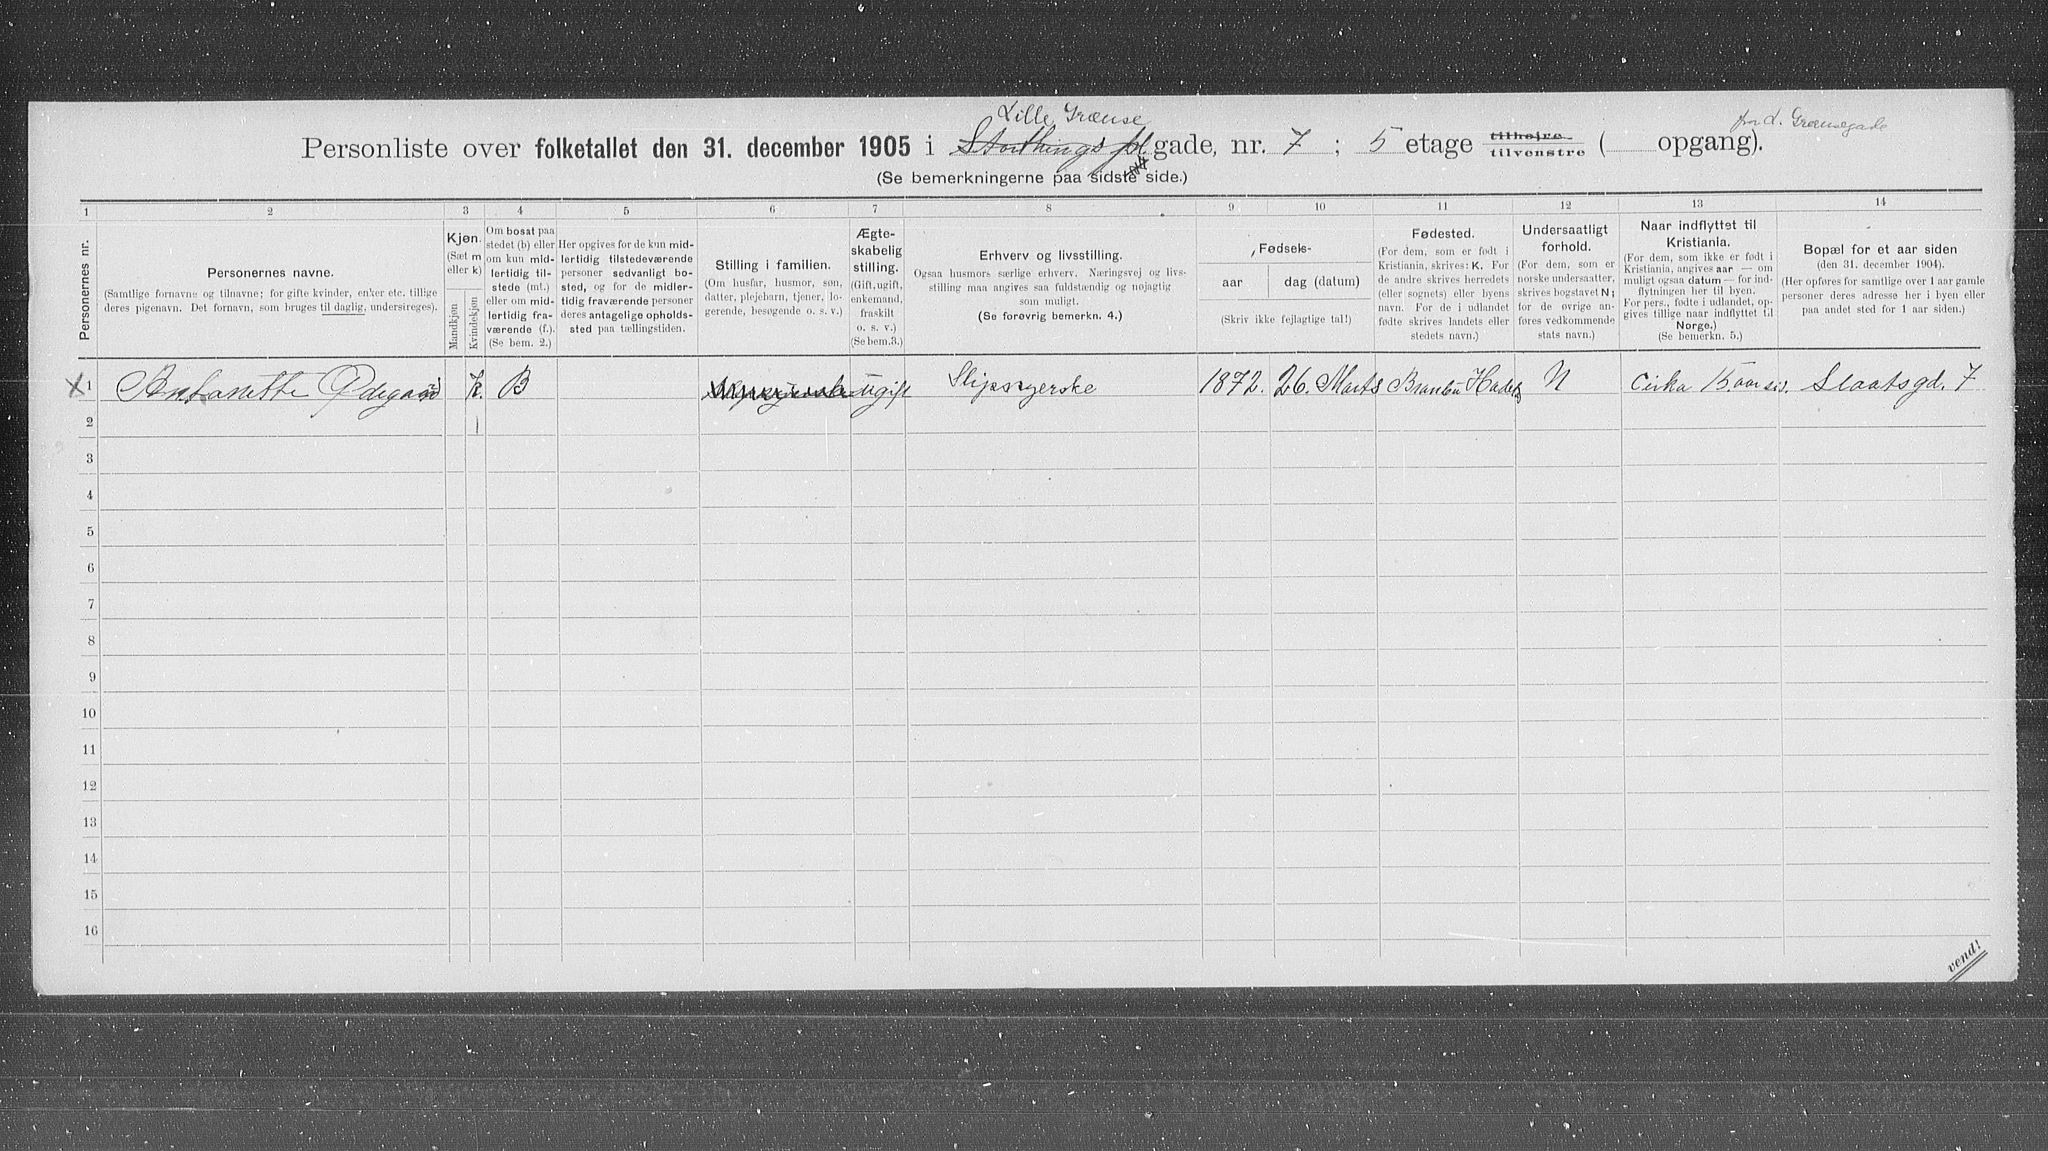 Lille Grænse
fra L. Grænsegade
Personliste over folketallet den 31. december 1905 i Storthings pl. gade, nr. 7 ; 5 etage tilhøjre tilvenstre ( opgang).
(Se bemerkningerne paa sidste side.)
1 2 3 4 5 6 7 8 9 10 11 12 13 14
Personernes nr.
Personernes navne.
(Samtlige fornavne og tilnavne; for gifte kvinder, enker etc. tillige
deres pigenavn. Det fornavn, som bruges til daglig, understreges).
Kjøn.
(Sæt m
eller k)
Mandkjøn
Kvindekjøn
Om bosat paa
stedet (b) eller
om kun mid-
lertidig til-
stede (mt.)
eller om mid-
lertidig fra-
værende (f.).
(Se bem. 2.)
Her opgives for de kun mid-
lertidig tilstedeværende
personer sedvanlig bo-
sted, og for de midler-
tidig fraværende personer
deres antagelige opholds-
sted paa tællingstiden.
Stilling i familien.
(Om husfar, husmor, søn,
datter, plejebarn, tjener, lo-
gerende, besøgende o. s. v.)
Ægte-
skabelig
stilling.
(Gift, ugift,
enkemand,
fraskilt
o. s. v.)
(Se bem.3.)
Erhverv og livsstilling.
Ogsaa husmors særlige erhverv. Næringsvej og livs-
stilling maa angives saa fuldstændig og nøjagtig
som muligt.
(Se forøvrig bemerkn. 4.)
Fødsels-
aar dag (datum)
(Skriv ikke fejlagtige tal!)
Fødested.
(For dem, som er født i
Kristiania, skrives: K. For
de andre skrives herredets
(eller sognets) eller byens
navn. For de i udlandet
fødte skrives landets eller
stedets navn.)
Undersaatligt
forhold.
(For dem, som er
norske undersaatter,
skrives bogstavet N;
for de øvrige an-
føres vedkommende
stats navn.)
Naar indflyttet til
Kristiania.
(For dem, som ikke er født i
Kristiania, angives aar — om
muligt ogsaa datum — for ind-
flytningen her til byen.
For pers., fødte i udlandet, op-
gives tillige naar indflyttet til
Norge.)
(Se bemerkn. 5.)
Bopæl for et aar siden
(den 31. december 1904).
(Her opføres for samtlige over 1 aar gamle
personer deres adresse her i byen eller
paa andet sted for 1 aar siden.)
1 Antonette Ødegaard k. B ugift Slipssyerske 1872. 26. Marts Brandbu Hadeld N Cirka 15 aar sid. Slaatsgd. 7
2
3
4
5
6
7
8
9
10
11
12
13
14
15
16
vend!